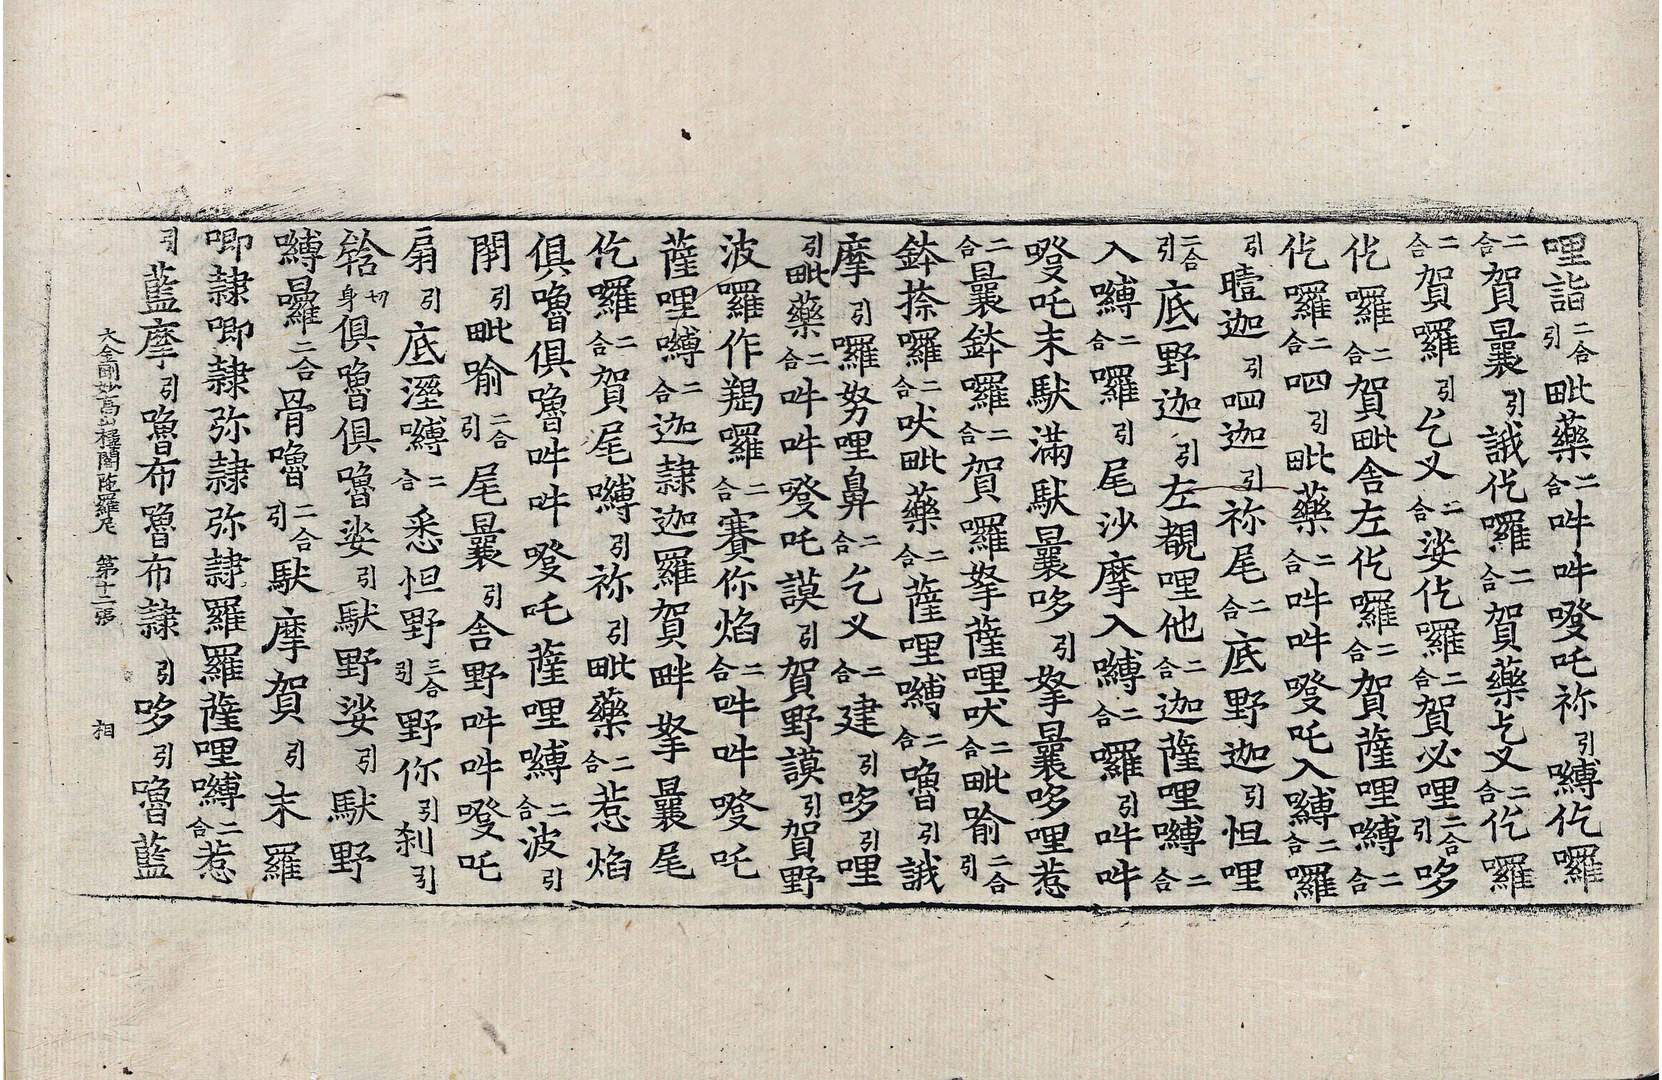 哩詣二合引毗藥二合吽吽㗶吒祢引嚩仡囉
二合賀曩引誐仡囉二合賀藥乞叉二合仡囉
二合賀囉引乞叉二合娑仡囉二合賀必哩二合引哆
仡囉二合賀毗舍左仡囉二合賀薩哩嚩二合
仡囉二合呬引毗藥二合吽吽㗶吒入嚩二合囉
引曀迦引呬迦引祢尾二合底野迦引怛哩
二合引底野迦引左覩哩他二合迦薩哩嚩二合
入嚩二合囉引尾沙摩入嚩二合囉引吽吽
㗶吒末馱滿馱曩哆引拏曩哆哩惹
二合曩鉢囉二合賀囉拏薩哩吠二合毗喻二合引
鉢捺囉二合吠毗藥二合薩哩嚩二合嚕引誐
摩引囉努哩鼻二合乞叉二合建引哆引哩
引毗藥二合吽吽㗶吒謨引賀野謨引賀野
波囉作羯囉二合賽你焰二合吽吽㗶吒
薩哩嚩二合迦隷迦羅賀畔拏曩尾
仡囉二合賀尾嚩引祢引毗藥二合惹焰
俱嚕俱嚕吽吽㗶吒薩哩嚩二合波引
閉引毗喻二合引尾曩引舍野吽吽㗶吒
扇引底溼嚩二合悉怛野三合引野你引刹引
㸷身切俱嚕俱嚕娑引馱野娑引馱野
嚩曩囉二合骨嚕二合引馱摩賀引末羅
唧隷唧隷弥隷弥隷羅羅薩哩嚩二合惹
引藍摩引嚕布嚕布隷引哆引嚕藍
大金剛妙髙山樓閣陁羅尼 第十二張 相